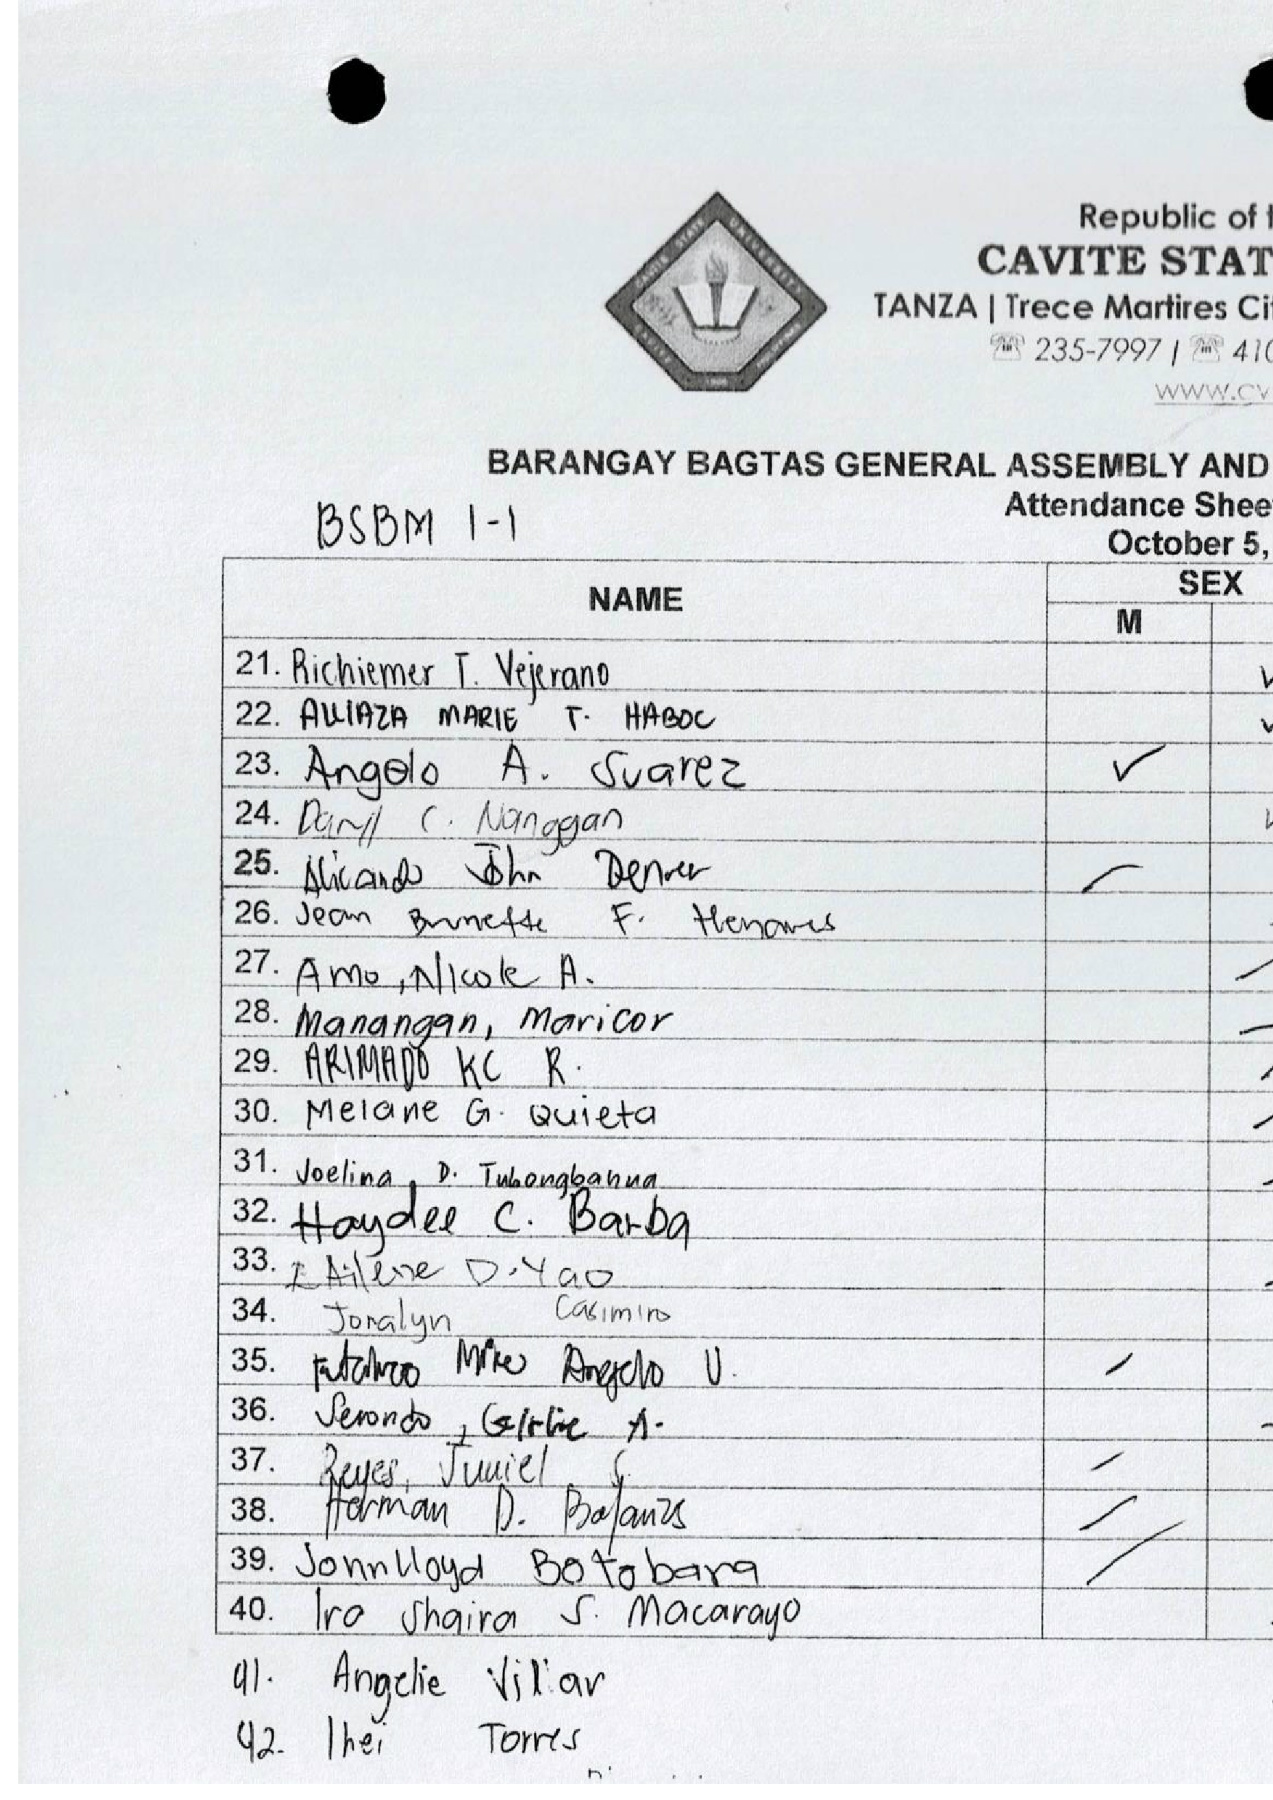 Republic of
CAVITE STAT
TANZA | Trece Martires Ci
235-7997 | 410
www.cv
BARANGAY BAGTAS GENERAL ASSEMBLY AND
Attendance Shee
BSBM 1-1
October 5,
NAME
SEX
M
21. Richiemer T. Vejerano
22. MARIE T. HABOC
23. Angelo A. Suarez
24. Daryl C. Nanggan
25. Alicando John Denver
26. Jean Brunette F. Henares
27. Amo, Nicole A.
28. Manangan, Maricor
29. ARIMADO KC R.
30. Melane G. Quieta
31. Joelina D. Tubongbanua
32. Haydee C. Barba
33. Ailene D. Yao
34. Joralyn Casimiro
35. Mike Angelo U.
36. Serondo, Girlie A.
37. Reyes, Juniel
38. Herman D.
39. JohnLloyd Botobara
40. Ira Shaira S. Macarayo
41. Angelie Villar
42. Ihei Torres